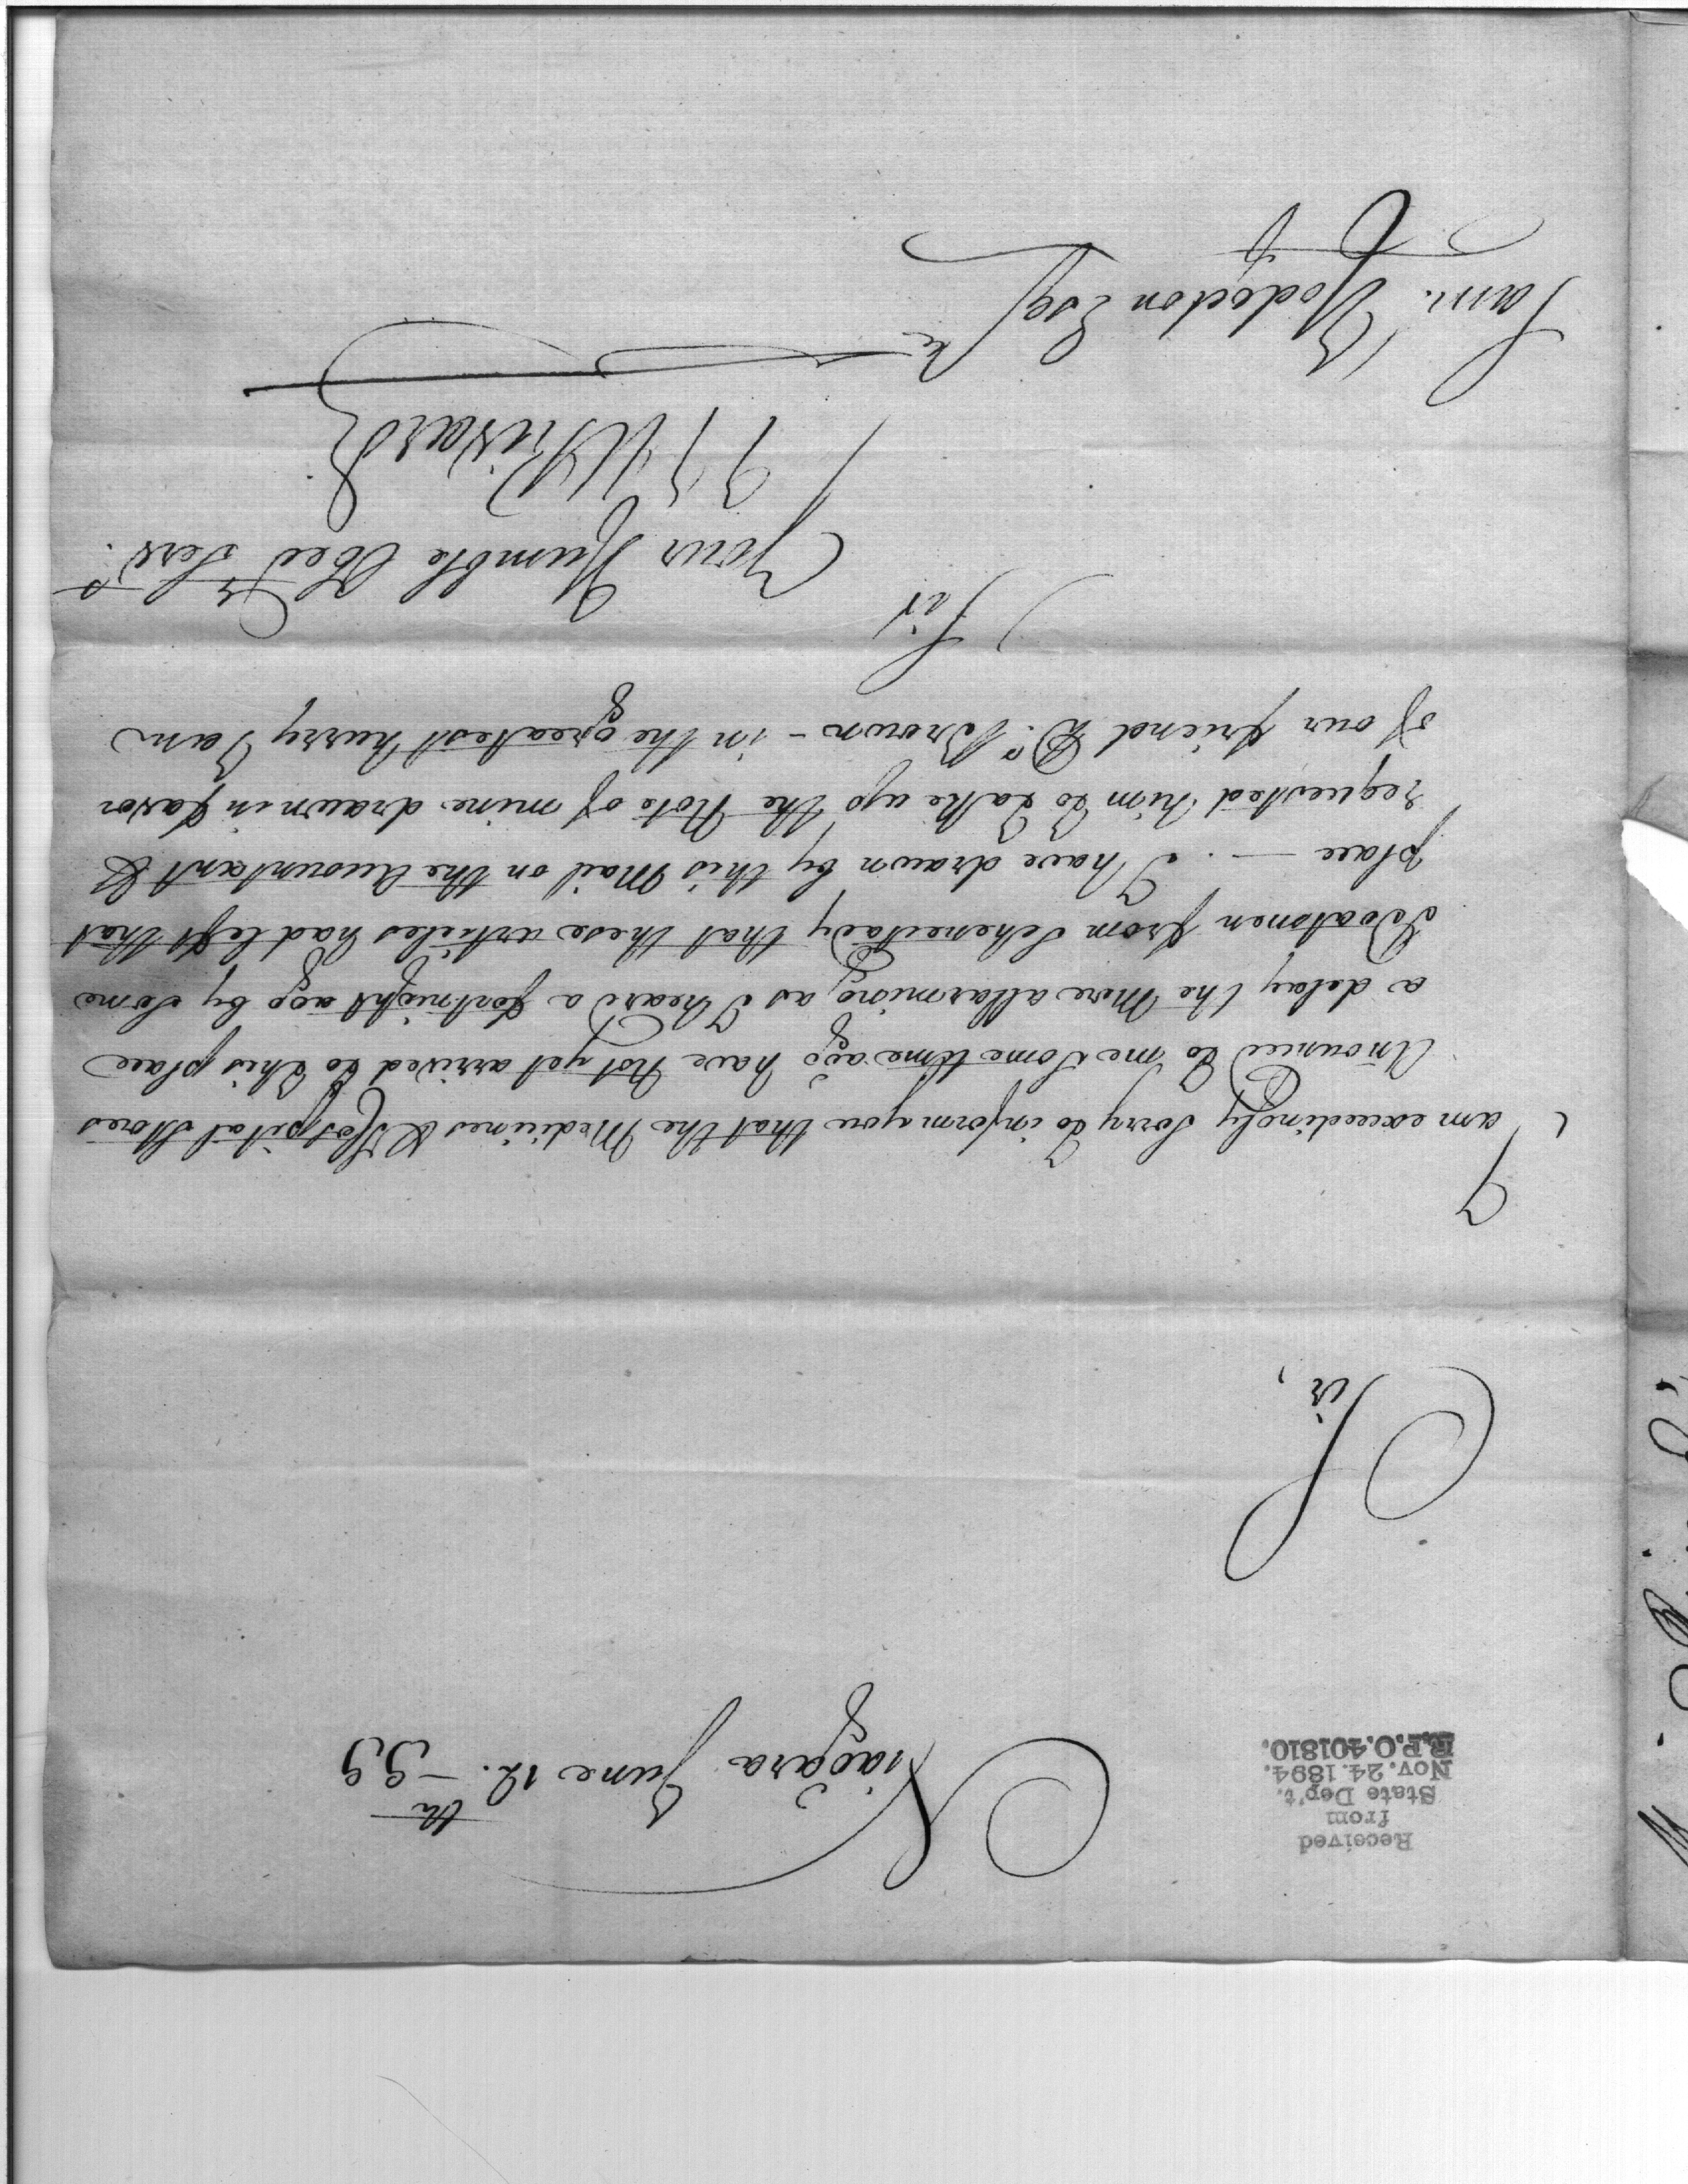 Received
from
State Dep't.
Nov. 24. 1894.
R.P.O. 401810.
Niagara June 12.th - 99
Sir,
I
am exceedingly Sorry to inform you that the Medicines & Hospital Stores
Anounced to me Some time ago have Not yet arrived to this place
a delay the More allarming, as I heard a fortnight ago by Some
Boatmen from Schenectady that these articles had left that
place —. I have drawn by this Mail on the Accountant &
requested him to take up the Note of mine drawn in favor
of our friend Dr. Brown - in the greatest hurry I am
Sir
Your Humble Obed Servt.
Sam. Hodgdon Esqr